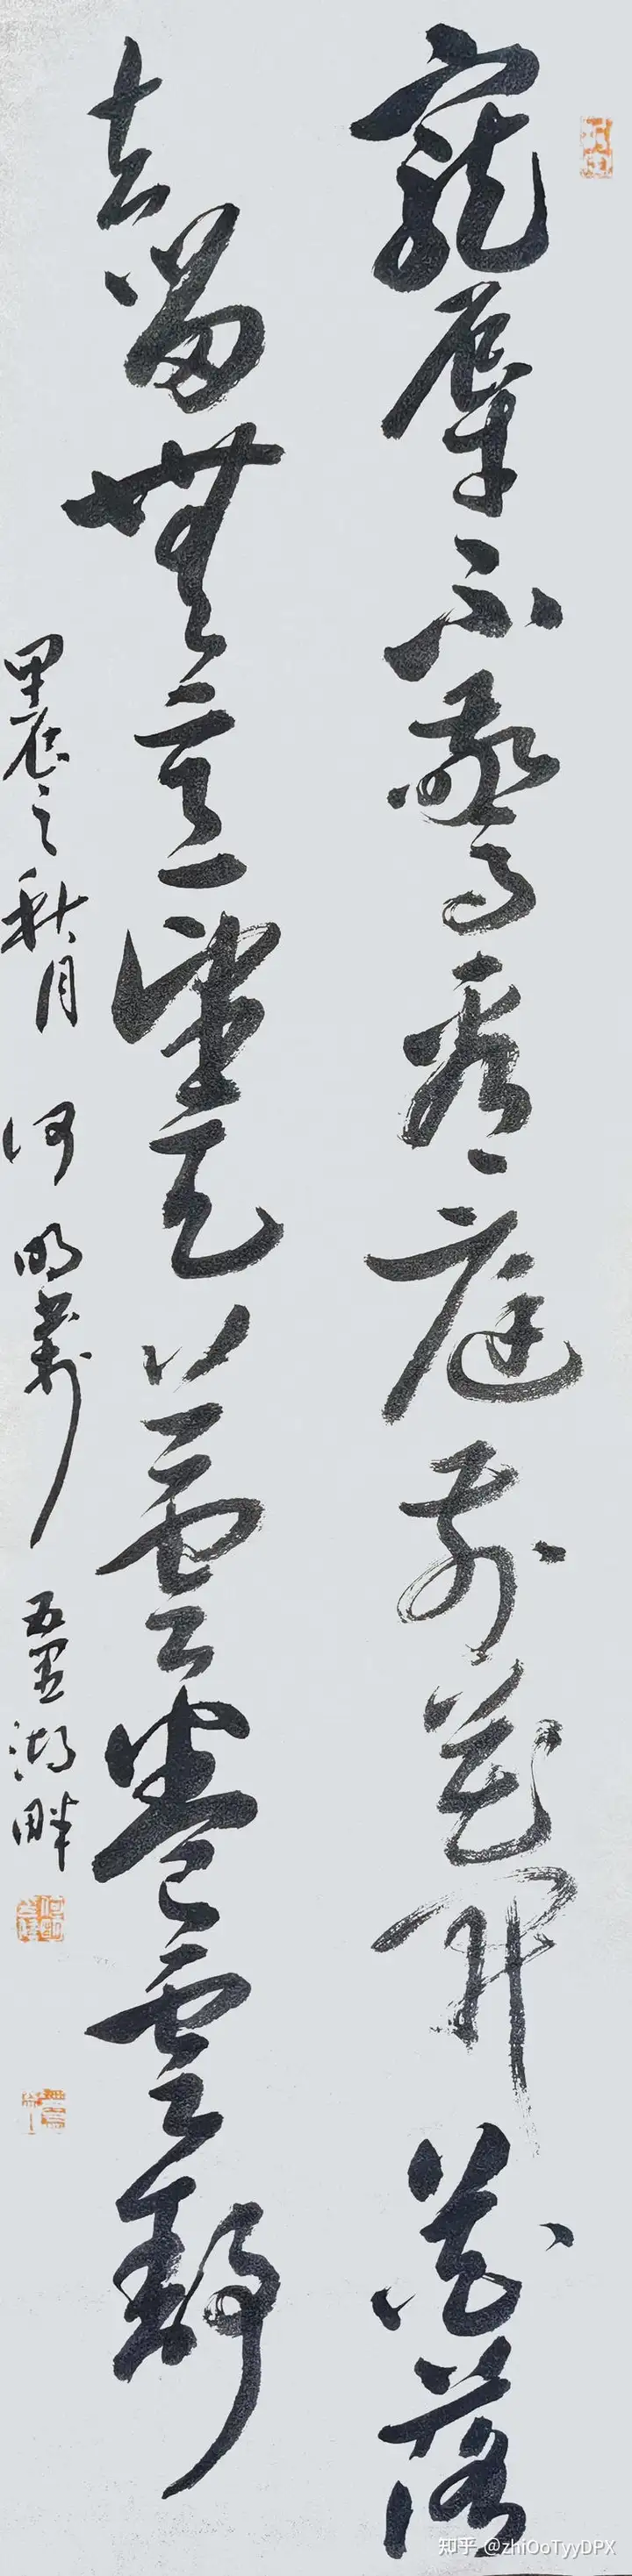 寵辱不驚看庭前花開花落
去留無意望天雲卷雲舒
甲辰之秋月 何明 五里湖畔
知乎 @zhiOoTyyDPX